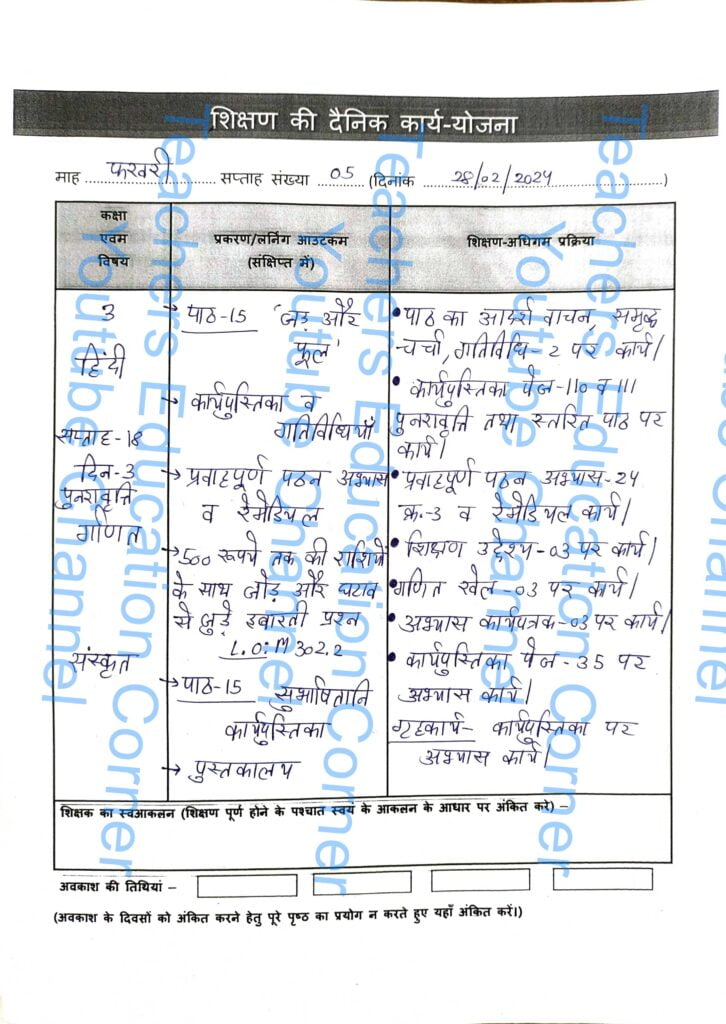 शिक्षण की दैनिक कार्य-योजना
माह फरवरी सप्ताह संख्या 05 (दिनांक 28/02/2024)
कक्षा
एवम
विषय
प्रकरण/लर्निंग आउटकम
(संक्षिप्त में)
शिक्षण-अधिगम प्रक्रिया
3
हिंदी
सप्ताह-18
दिन-3
पुनरावृत्ति
गणित
संस्कृत
→ पाठ-15 'जड़ और
फूल'
→ कार्यपुस्तिका व
गतिविधियाँ
→ प्रवाहपूर्ण पठन अभ्यास
व रेमेडियल
→ 500 रूपये तक की राशियों
के साथ जोड़ और घटाव
से जुड़े इबारती प्रश्न
L.O: M 302.2
→ पाठ-15 सुभाषितानि
कार्यपुस्तिका
→ पुस्तकालय
• पाठ का आदर्श वाचन, समृद्ध
चर्चा, गतिविधि-2 पर कार्य।
• कार्यपुस्तिका पेज-110 व 111
पुनरावृत्ति तथा स्तरित पाठ पर
कार्य।
• प्रवाहपूर्ण पठन अभ्यास-24
क्र.-3 व रेमेडियल कार्य।
• शिक्षण उद्देश्य-03 पर कार्य।
• गणित खेल-03 पर कार्य।
• अभ्यास कार्यपत्रक-03 पर कार्य।
• कार्यपुस्तिका पेज-35 पर
अभ्यास कार्य।
गृहकार्य- कार्यपुस्तिका पर
अभ्यास कार्य।
शिक्षक का स्वआकलन (शिक्षण पूर्ण होने के पश्चात स्वयं के आकलन के आधार पर अंकित करे) –
अवकाश की तिथियां –
(अवकाश के दिवसों को अंकित करने हेतु पूरे पृष्ठ का प्रयोग न करते हुए यहाँ अंकित करें।)
Teachers Education Corner
Youtube Channel
Teachers Education Corner
Youtube Channel
Teachers Education Corner
Youtube Channel